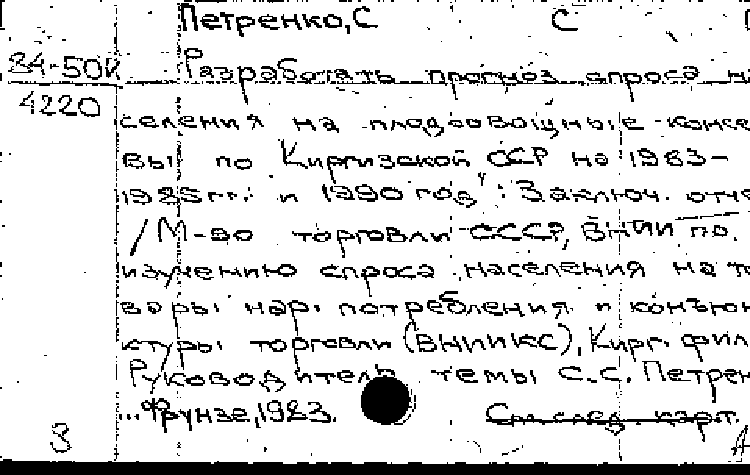 Петренко, С С
84-50К Разработать прогноз спроса на
4220
селения на плодоовощные консе
вы по Киргизской ССР на 1983-
1985 гг. и 1990 год": Заключ. отче
/М-во торговли СССР, ВНИИ по
изучению спроса населения на то
вары нар. потребления и конъюн
ктуры торговли (ВНИИКС), Кирг. фил
Руководитель темы С.С. Петрен
...Фрунзе, 1983. См. след. карт.
3 А